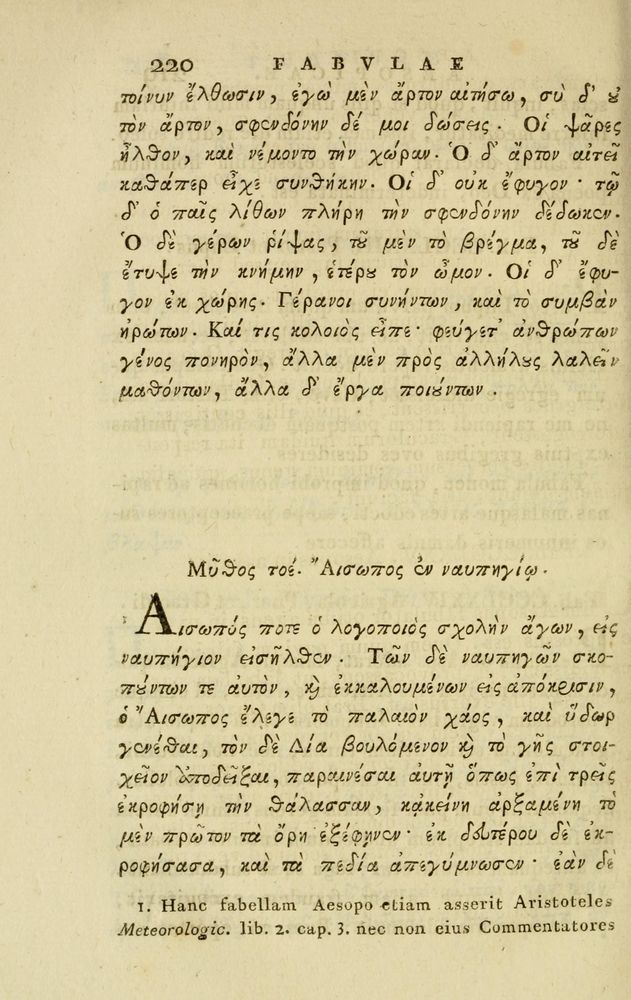 220 FABVLAE
τοίνυν ἔλθωσιν, ἐγὼ μὲν ἄρτον αἰτήσω, σὺ δ' ȣ
τὸν ἄρτον, σφενδόνην δέ μοι δώσεις. Οἱ ψᾶρες
ἦλθον, καὶ νέμοντο τὴν χώραν. Ὁ δ' ἄρτον αἰτεῖ
καθάπερ εἶχε συνθήκην. Οἱ δ' οὐκ ἔφυγον· τῷ
δ' ὁ παῖς λίθων πλήρη τὴν σφενδόνην δέδωκεν.
Ὁ δὲ γέρων ῥίψας, τȣ͂ μὲν τὸ βρέγμα, τȣ͂ δὲ
ἔτυψε τὴν κνήμην, ἑτέρȣ τὸν ὦμον. Οἱ δ' ἔφυ-
γον ἐκ χώρης. Γέρανοι συνήντων, καὶ τὸ συμβὰν
ἠρώτων. Καί τις κολοιὸς εἶπε· φεύγετ' ἀνθρώπων
γένος πονηρὸν, ἄλλα μὲν πρὸς ἀλλήλȣς λαλεῖν
μαθόντων, ἄλλα δ' ἔργα ποιȣ́ντων.
Μῦθος τοέ. Ἄισωπος ἐν ναυπηγίῳ.
Αισωπός ποτε ὁ λογοποιὸς σχολὴν ἄγων, εἰς
ναυπήγιον εἰσῆλθεν. Τῶν δὲ ναυπηγῶν σκο-
πȣ́ντων τε αὐτὸν, ϗ ἐκκαλουμένων εἰς ἀπόκρισιν,
ὁ Ἄισωπος ἔλεγε τὸ παλαιὸν χάος, καὶ ὕδωρ
γενέσθαι, τὸν δὲ Δία βουλόμενον ϗ τὸ γῆς στοι-
χεῖον ὑποδεῖξαι, παραινέσαι αὐτῇ ὅπως ἐπὶ τρεῖς
ἐκροφήσῃ τὴν θάλασσαν, κἀκείνη ἀρξαμένη τὸ
μὲν πρῶτον τὰ ὄρη ἐξέφηνεν· ἐκ δευτέρου δὲ ἐκ-
ροφήσασα, καὶ τὰ πεδία ἀπεγύμνωσεν· ἐὰν δὲ
1. Hanc fabellam Aesopo etiam asserit Aristoteles
Meteorologic. lib. 2. cap. 3. nec non eius Commentatores